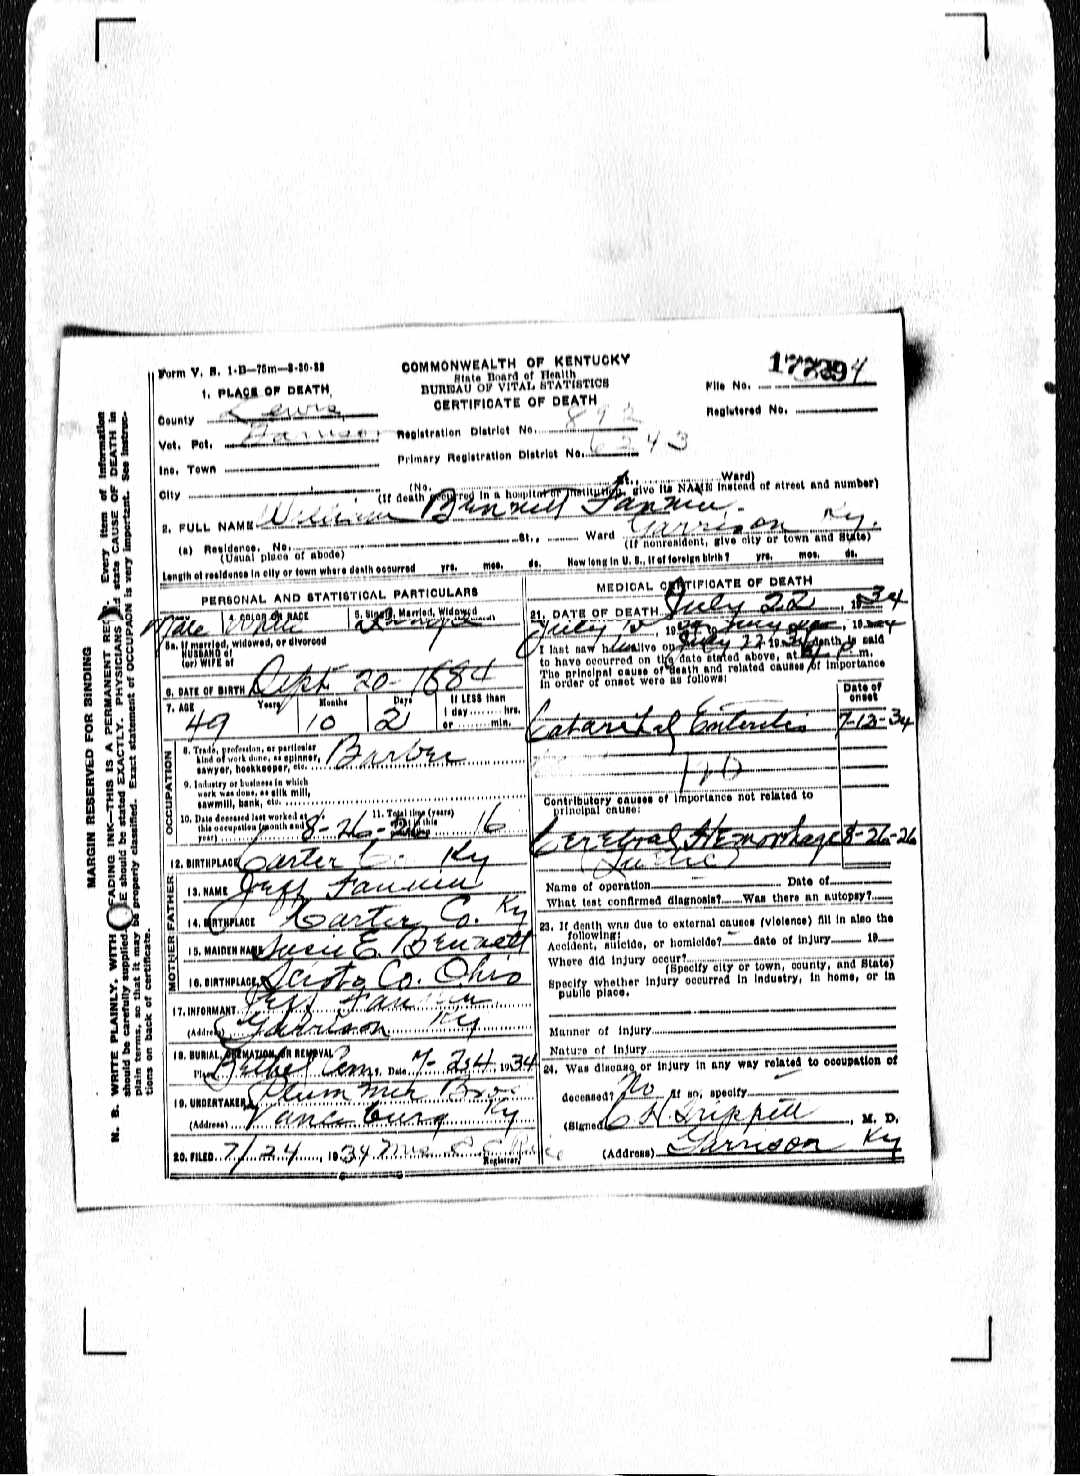 Form V. S. 1-D—75m—8-30-33
COMMONWEALTH OF KENTUCKY
State Board of Health
BUREAU OF VITAL STATISTICS
CERTIFICATE OF DEATH
File No.
Registered No.
1. PLACE OF DEATH
County Lewis
Vot. Pct. Garrison
Registration District No. 892
Inc. Town
Primary Registration District No. 6243
City
(No. St., Ward)
(If death occurred in a hospital or institution, give its NAME instead of street and number)
2. FULL NAME William Bennett Fannin
(a) Residence. No. St., Ward Garrison Ky.
(Usual place of abode)
(If nonresident, give city or town and State)
Length of residence in city or town where death occurred yrs. mos. ds. How long in U. S., if of foreign birth? yrs. mos. ds.
PERSONAL AND STATISTICAL PARTICULARS
4. COLOR OR RACE 5. Single, Married, Widowed
Male White
5a. If married, widowed, or divorced
HUSBAND of
(or) WIFE of
6. DATE OF BIRTH Sept 20-1884
7. AGE Years Months Days If LESS than
1 day hrs.
49 10 2 or min.
OCCUPATION
8. Trade, profession, or particular
kind of work done, as spinner,
sawyer, bookkeeper, etc. Barber
9. Industry or business in which
work was done, as silk mill,
sawmill, bank, etc.
10. Date deceased last worked at
this occupation (month and
year) 8-26-
11. Total time (years)
spent in this
16
12. BIRTHPLACE Carter Co. Ky
FATHER
13. NAME Jeff Fannin
14. BIRTHPLACE Carter Co. Ky
MOTHER
15. MAIDEN NAME Susie E. Bennett
16. BIRTHPLACE Scioto Co. Ohio
17. INFORMANT Jeff Fannin
(Address) Garrison Ky
18. BURIAL, CREMATION, OR REMOVAL
Place Bethel Cem. Date 7-24 1934
19. UNDERTAKER Plummer Bros
(Address) Vanceburg Ky
20. FILED 7/24, 1934 Mrs E C
Registrar.
MEDICAL CERTIFICATE OF DEATH
21. DATE OF DEATH July 22, 1934
I last saw him alive on July 22 1934 death is said
to have occurred on the date stated above, at P. m.
The principal cause of death and related causes of importance
in order of onset were as follows:
Date of
onset
Catarrhal Enteritis 7-12-34
Contributory causes of importance not related to
principal cause:
Cerebral Hemorrhage 8-26-26
Name of operation Date of
What test confirmed diagnosis? Was there an autopsy?
23. If death was due to external causes (violence) fill in also the
following:
Accident, suicide, or homicide? date of injury 19
Where did injury occur?
(Specify city or town, county, and State)
Specify whether injury occurred in industry, in home, or in
public place.
Manner of injury
Nature of injury
24. Was disease or injury in any way related to occupation of
deceased? No If so, specify
(Signed) M. D.
(Address) Garrison Ky
MARGIN RESERVED FOR BINDING